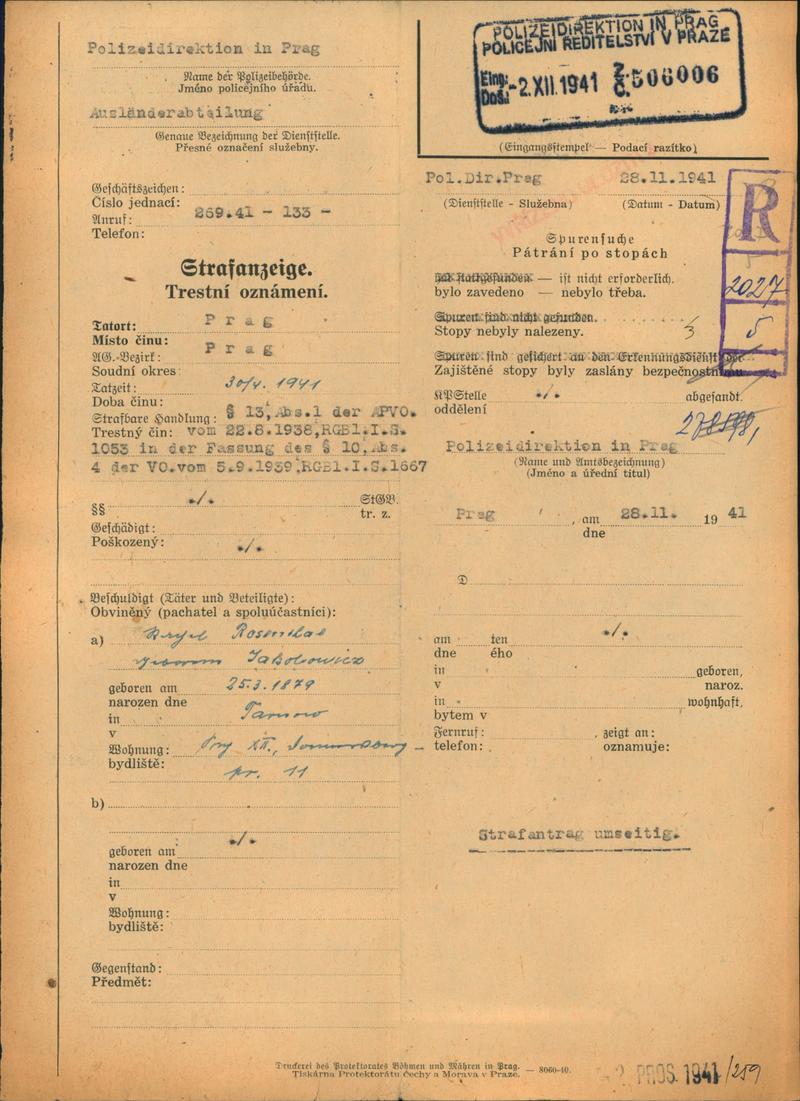 Polizeidirektion in Prag
Name der Polizeibehörde.
Jméno policejního úřadu.
Ausländerabteilung
Genaue Bezeichnung der Dienststelle.
Přesné označení služebny.
Geschäftszeichen:
Číslo jednací:
Anruf: 269.41 - 133 -
Telefon:
Strafanzeige.
Trestní oznámení.
Tatort: Prag
Místo činu:
AG.-Bezirk: Prag
Soudní okres
Tatzeit: 30/4. 1941
Doba činu:
Strafbare Handlung: § 13, Abs.1 der APVO.
Trestný čin: vom 22.8.1938,RGBl.I.S.
1053 in der Fassung des § 10,Abs.
4 der VO.vom 5.9.1939,RGBl.I.S.1667
§§ ./. StGB.
§§ tr. z.
Geschädigt:
Poškozený: ./.
Beschuldigt (Täter und Beteiligte):
Obviněný (pachatel a spoluúčastníci):
a) Rosenthal
Jakobowicz
geboren am 25.3.1879
narozen dne
in Tarnow
v
Wohnung: XII.,
bydliště: nr. 11
b)
./.
geboren am
narozen dne
in
v
Wohnung:
bydliště:
Gegenstand:
Předmět:
POLIZEIDIREKTION IN PRAG
POLICEJNÍ ŘEDITELSTVÍ V PRAZE
Eing.: Došl. -2.XII.1941 Z. Č. 506006
(Eingangsstempel — Podací razítko)
Pol.Dir.Prag 28.11.1941
(Dienststelle - Služebna) (Datum - Datum)
R
2027
5
Spurensuche
Pátrání po stopách
hat stattgefunden — ist nicht erforderlich.
bylo zavedeno — nebylo třeba.
Spuren sind nicht gefunden.
Stopy nebyly nalezeny. 3
Spuren sind gesichert an den Erkennungsdienst der
Zajištěné stopy byly zaslány bezpečnostnímu
KPStelle ./. abgesandt.
oddělení
Polizeidirektion in Prag
(Name und Amtsbezeichnung)
(Jméno a úřední titul)
Prag , am 28.11. 19 41
dne
D
am ten ./.
dne ého
in geboren,
v naroz.
in wohnhaft,
bytem v
Fernruf: , zeigt an:
telefon: oznamuje:
Strafantrag umseitig.
Druckerei des Protektorates Böhmen und Mähren in Prag.
Tiskárna Protektorátu Čechy a Morava v Praze. — 8060-40.
2. PROS. 1941 /259